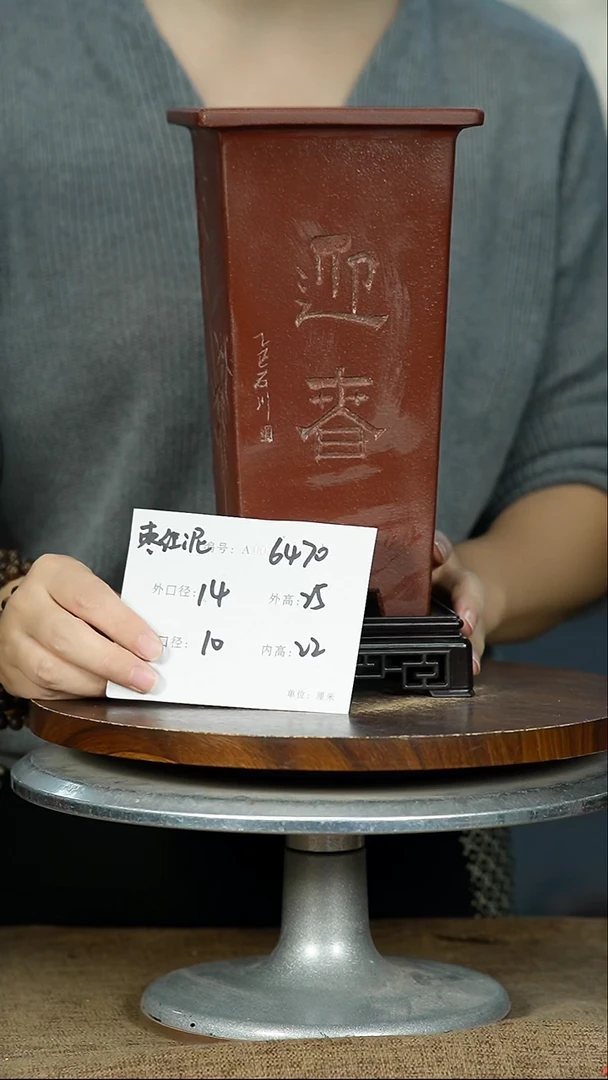 迎
春
乙巳石川
枣红泥 编号: A006470
外口径: 14 外高: 25
口径: 10 内高: 22
单位: 厘米